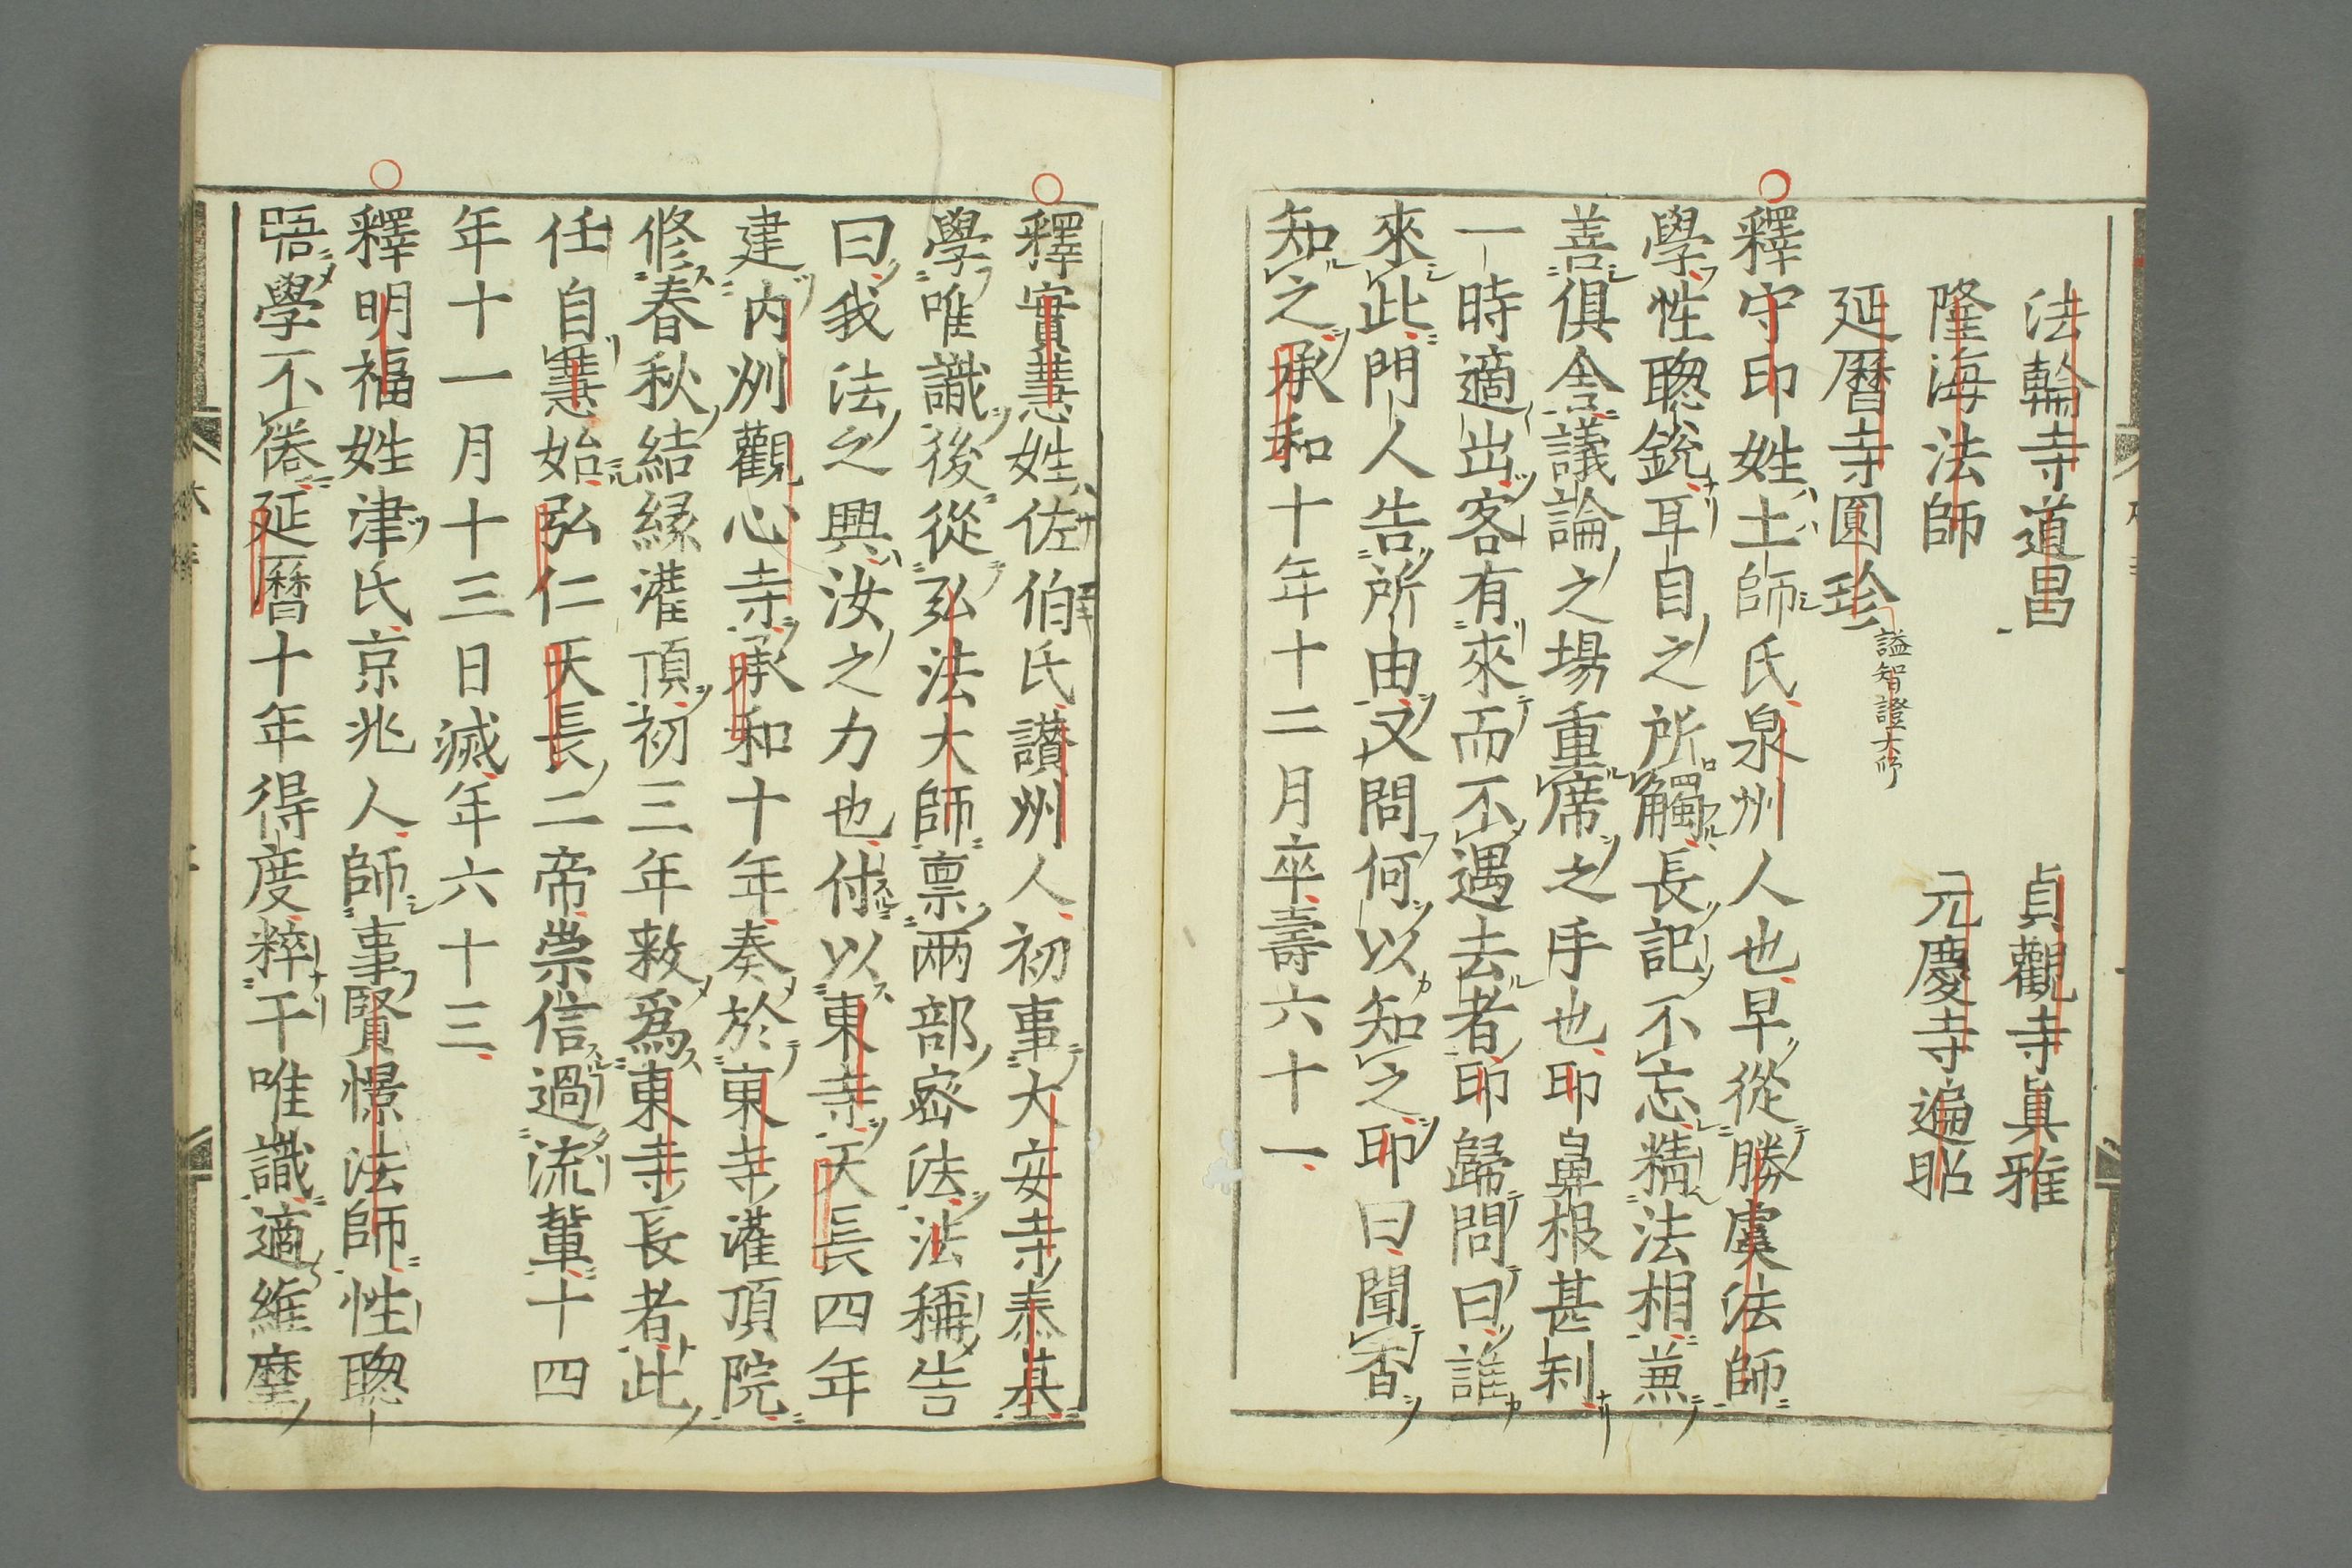 法輪寺道昌　貞觀寺眞雅
隆海法師　元慶寺遍昭
延曆寺圓珍　謚智證大師
釋守印姓土師氏泉州人也早從勝虞法師
學性聰銳耳目之所觸長記不忘精法相兼
善俱舍議論之場重席之手也印鼻根甚利
一時適出客有來而不遇去者印歸問曰誰
來此門人告所由又問何以知之印曰聞香
知之承和十年十二月卒壽六十一
釋實慧姓佐伯氏讃州人初事大安寺泰基
學唯識後從弘法大師稟兩部密法法稱告
曰我法之興汝之力也付以東寺天長四年
建内州觀心寺承和十年奏於東寺灌頂院
修春秋結緣灌頂初三年敕爲東寺長者此
任自慧始弘仁天長二帝崇信過流輩十四
年十一月十三日滅年六十三
釋明福姓津氏京兆人師事賢憬法師性聰
晤學不倦延曆十年得度粹干唯識適維摩